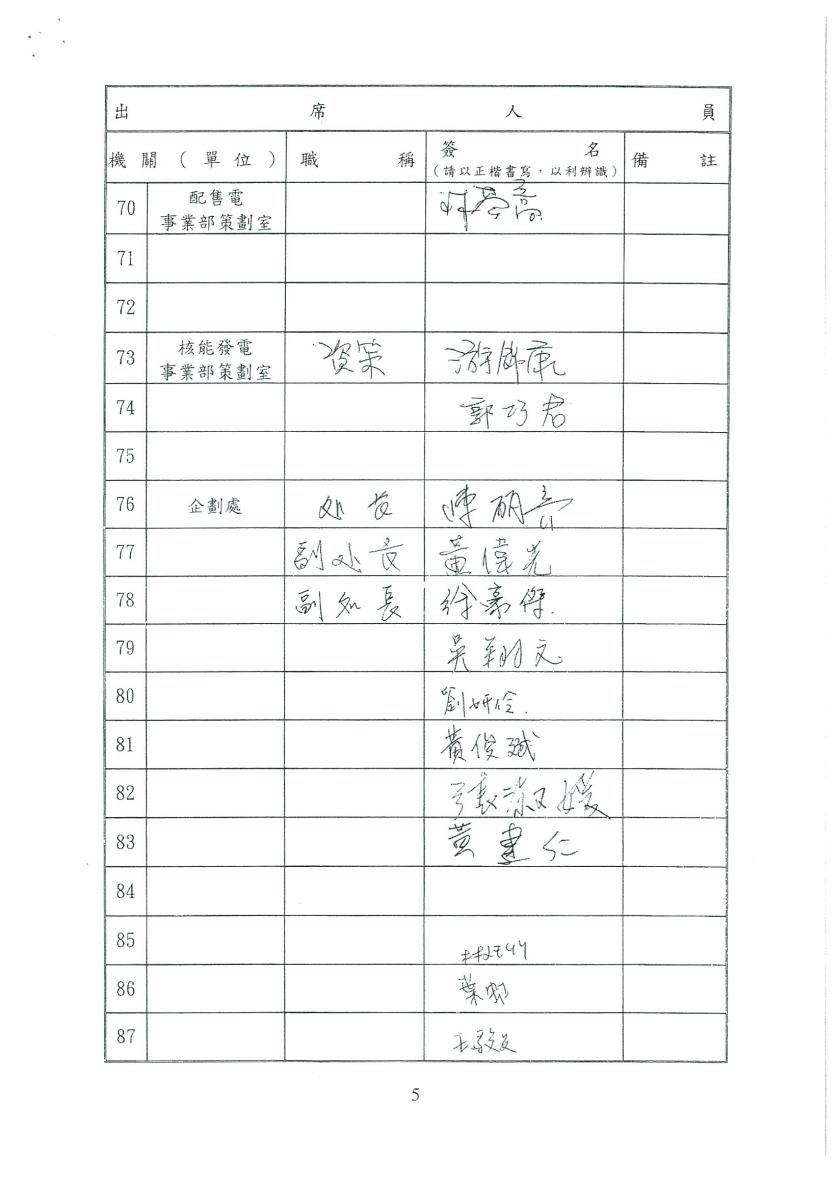 出 席 人 員
機關(單位) 職稱 簽名 備註
(請以正楷書寫,以利辨識)
70 配售電
事業部策劃室
71
72
73 核能發電 資策
事業部策劃室
74 郭巧君
75
76 企劃處 处长 陳朝
77 副处長 黃偉光
78 副処長 徐豪傑.
79 吳翔文
80 劉妍伶.
81 黃俊斌
82 張淑媛
83 黃建仁
84
85
86 葉
87 王
5